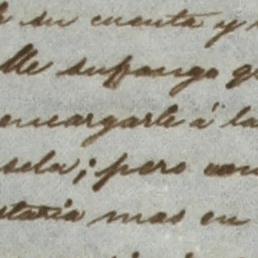 su cuenta y
supongo
encargarle á la
sela; pero con
mas en